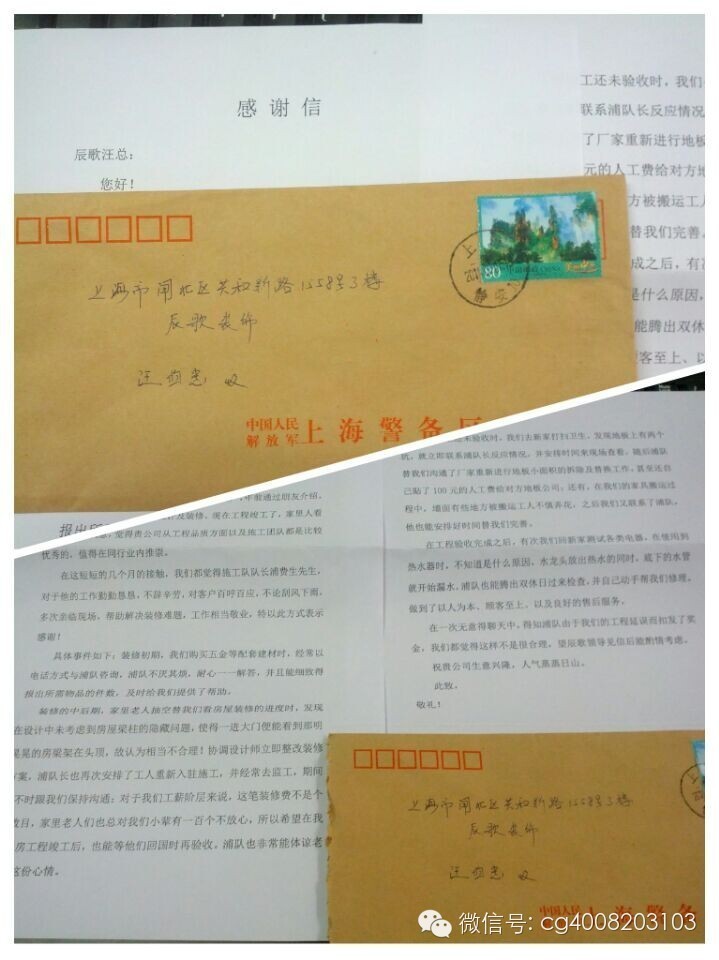 感谢信
辰歌汪总：
您好！
工还未验收时，我们
联系浦队长反应情况
了厂家重新进行地板
元的人工费给对方地
方被搬运工人
替我们完善。
成之后，有次
是什么原因，
能腾出双休
客至上、以
80
中国邮政 CHINA
上
静安
上海市闸北区共和新路1558号3楼
辰歌装饰
汪总 收
中国人民
解放军上海警备区
年前通过朋友介绍，
及装修。现在工程竣工了，家里人看
报出所
觉得贵公司从工程品质方面以及施工团队都是比较
优秀的，值得在同行业内推崇。
在这短短的几个月的接触，我们都觉得施工队队长浦费生先生，
对于他的工作勤勤恳恳，不辞辛劳，对客户百呼百应，不论刮风下雨，
多次亲临现场，帮助解决装修难题，工作相当敬业，特以此方式表示
感谢！
具体事件如下：装修初期，我们购买五金等配套建材时，经常以
电话方式与浦队咨询，浦队不厌其烦，耐心一一解答，并且能细致得
报出所需物品的件数，及时给我们提供了帮助。
装修的中后期，家里老人抽空替我们看房屋装修的进度时，发现
在设计中未考虑到房屋梁柱的隐藏问题，使得一进大门便能看到那明
晃晃的房梁架在头顶，故认为相当不合理！协调设计师立即整改装修
方案，浦队长也再次安排了工人重新入驻施工，并经常去监工，期间
不时跟我们保持沟通；对于我们工薪阶层来说，这笔装修费不是个
数目，家里老人们也总对我们小辈有一百个不放心，所以希望在我
房工程竣工后，也能等他们回国时再验收。浦队也非常能体谅老
这份心情。
还未验收时，我们去新家打扫卫生，发现地板上有两个
坑，就立即联系浦队长反应情况，并安排时间来现场查看，随后浦队
替我们沟通了厂家重新进行地板小面积的拆除及替换工作，甚至还自
己贴了100元的人工费给对方地板公司；还有，在我们的家具搬运过
程中，墙面有些地方被搬运工人不慎弄花，之后我们又联系了浦队，
他也能安排好时间替我们完善。
在工程验收完成之后，有次我们回新家测试各类电器，在使用到
热水器时，不知道是什么原因，水龙头放出热水的同时，底下的水管
就开始漏水，浦队也能腾出双休日过来检查，并自己动手帮我们修理，
做到了以人为本、顾客至上、以及良好的售后服务。
在一次无意得聊天中，得知浦队由于我们的工程延误而扣发了奖
金，我们都觉得这样不是很合理，望辰歌领导见信后能酌情考虑。
祝贵公司生意兴隆，人气蒸蒸日上。
此致，
敬礼！
上海市闸北区共和新路1558号3楼
辰歌装饰
汪总 收
中国人民
上海警备
微信号: cg4008203103